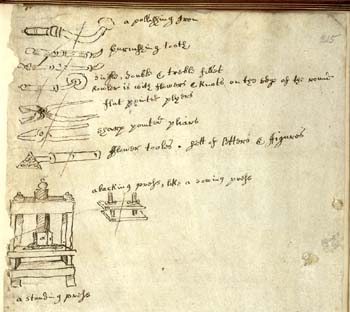 a pollishing Iron
215
burnishing tooth
single, double & treble fillet
Rowler is with flowers & knots on the edge of the
flatt pointed plyers
sharp pointed pliars
fflower tooles . sett of letters & figures
a backing press, like a sewing press
a standing press